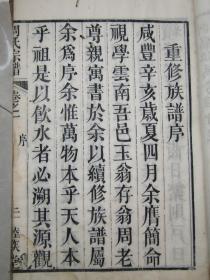 重修族譜序
咸豐辛亥歲夏四月余膺簡命
視學雲南吾邑玉翁存翁周老
尊親寓書於余以續修族譜屬
余爲序余惟萬物本乎天人本
乎祖是以飲水者必溯其源觀
周氏宗譜
卷之一
序